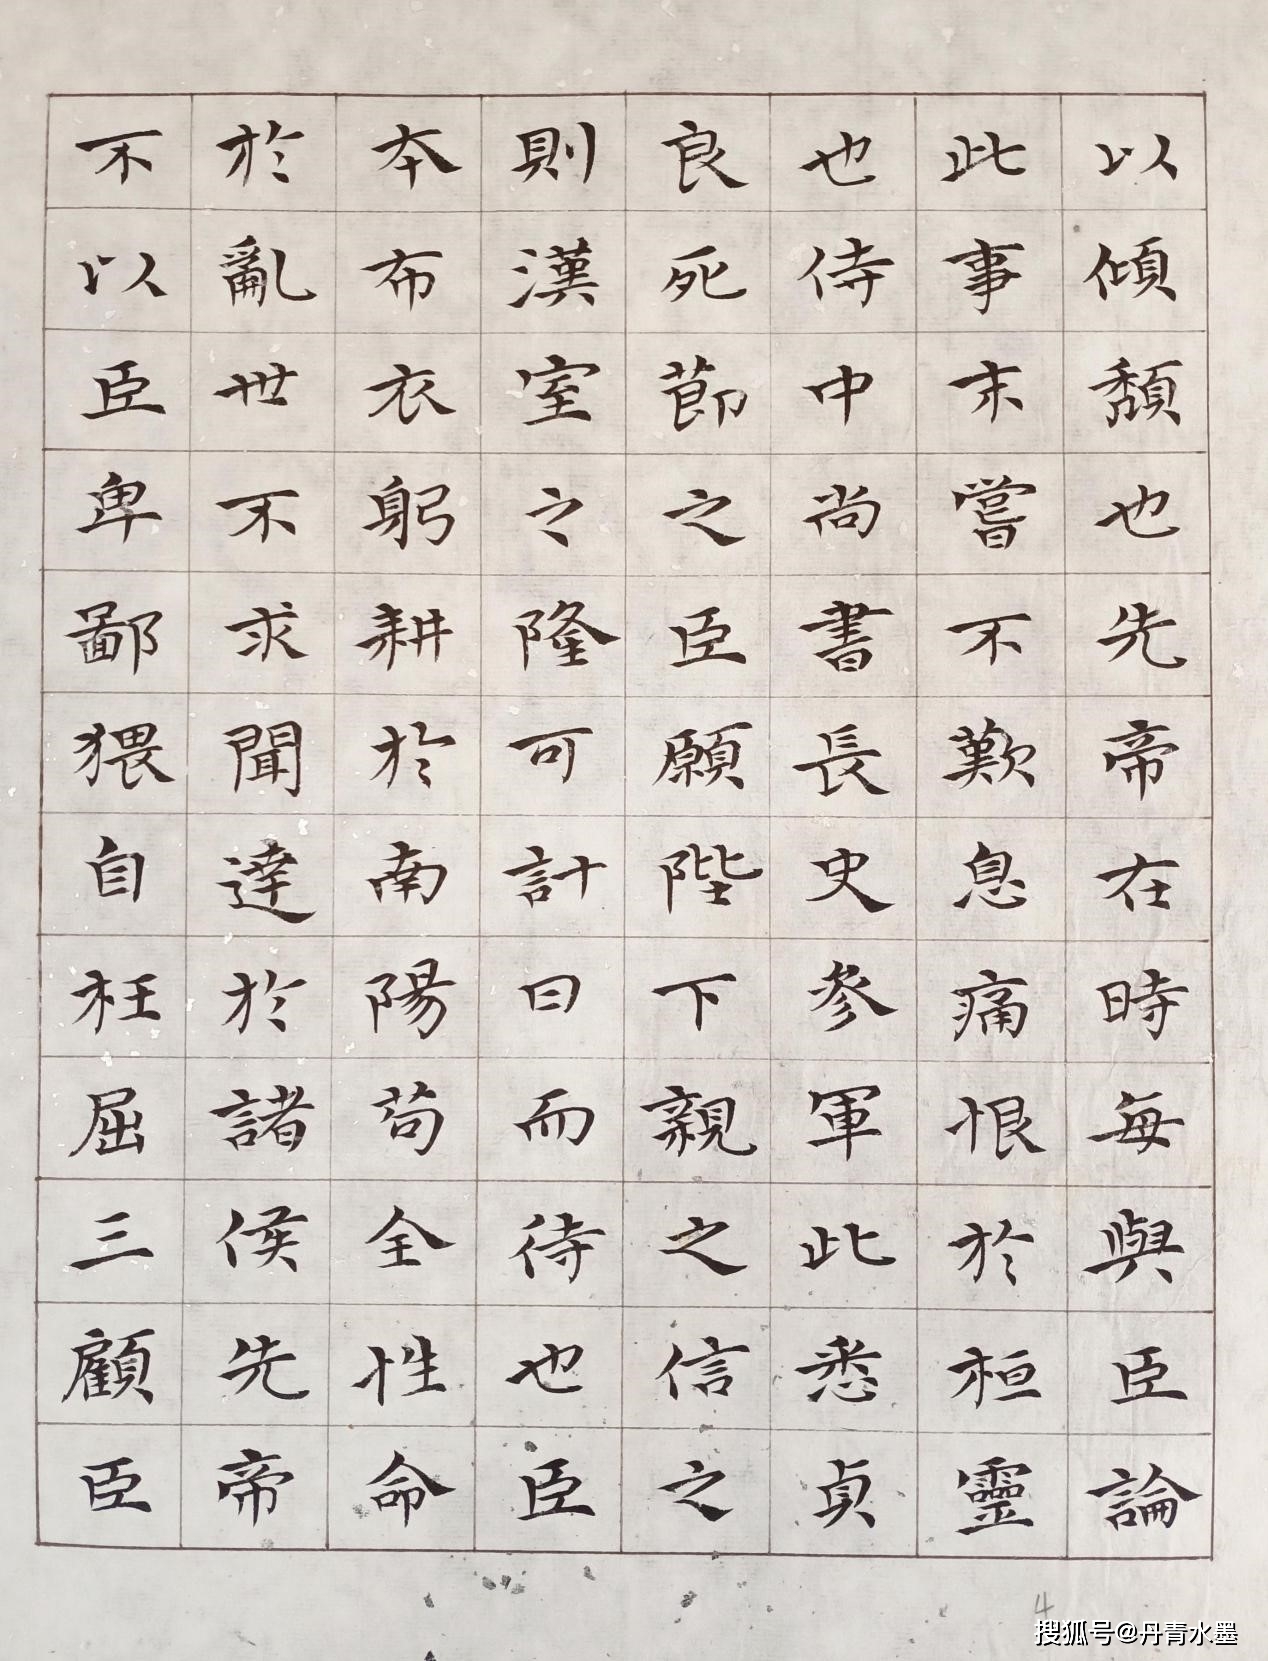 以傾頽也先帝在時每與臣論
此事未嘗不歎息痛恨於桓靈
也侍中尚書長史參軍此悉貞
良死節之臣願陛下親之信之
則漢室之隆可計日而待也臣
本布衣躬耕於南陽苟全性命
於亂世不求聞達於諸侯先帝
不以臣卑鄙猥自枉屈三顧臣
4
搜狐号@丹青水墨